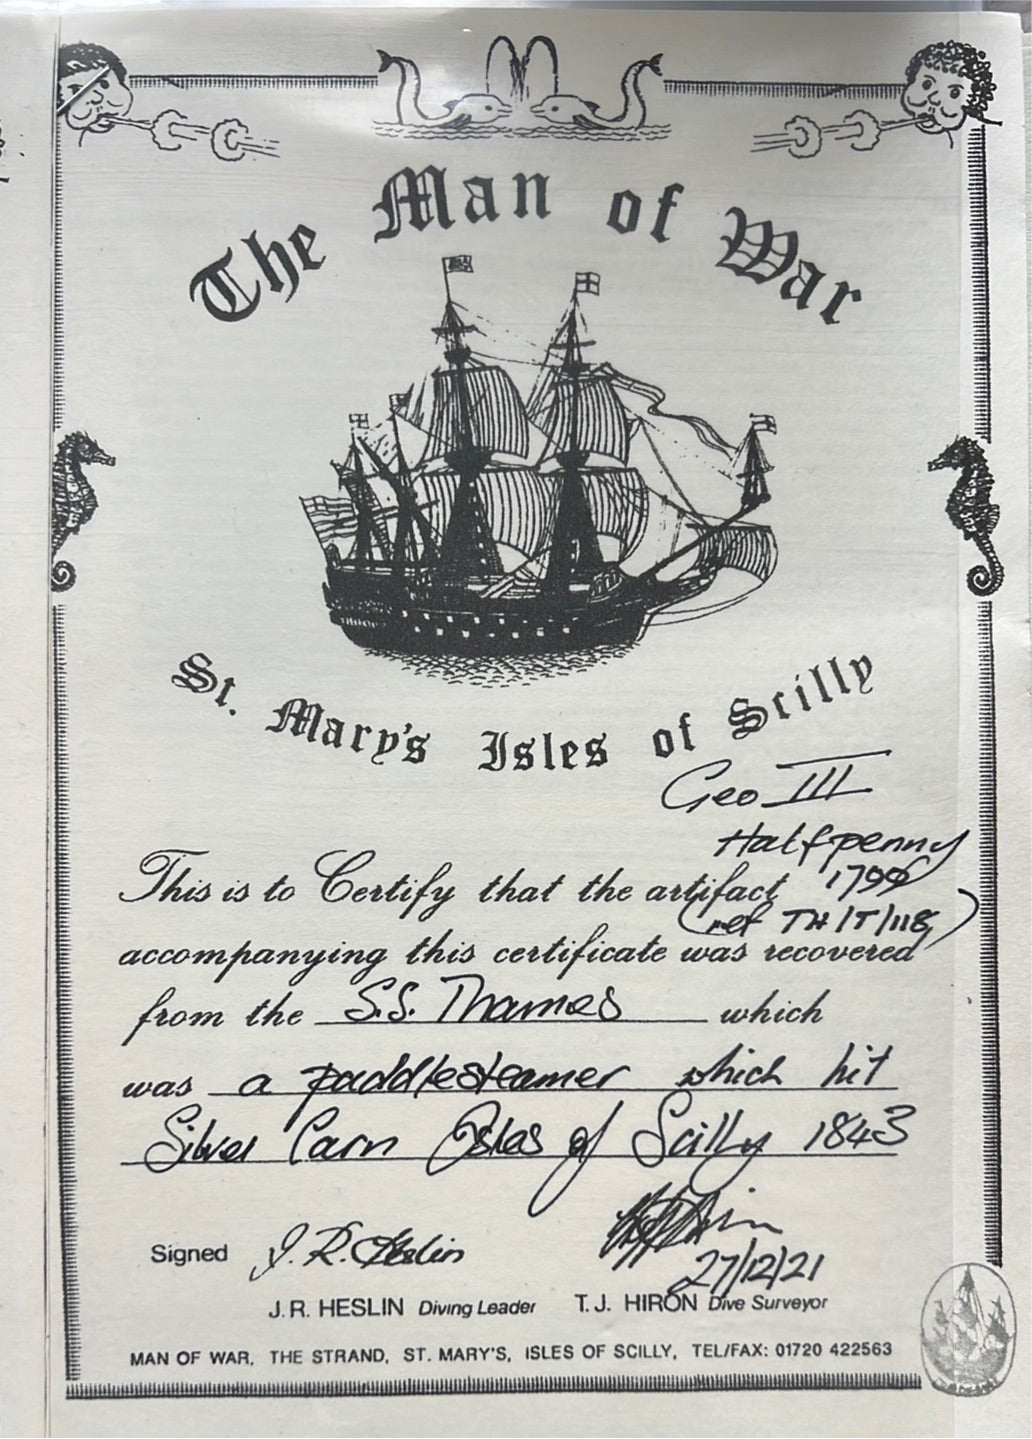 The Man of War
St. Mary's Isles of Scilly
Geo III
Halfpenny
This is to Certify that the artifact 1799
(ref TH/T/118)
accompanying this certificate was recovered
from the S.S. Thames which
was a paddlesteamer which hit
Silver Carn Isles of Scilly 1843
Signed J.R. Heslin
27/12/21
J.R. HESLIN Diving Leader T.J. HIRON Dive Surveyor
MAN OF WAR, THE STRAND, ST. MARY'S, ISLES OF SCILLY, TEL/FAX: 01720 422563